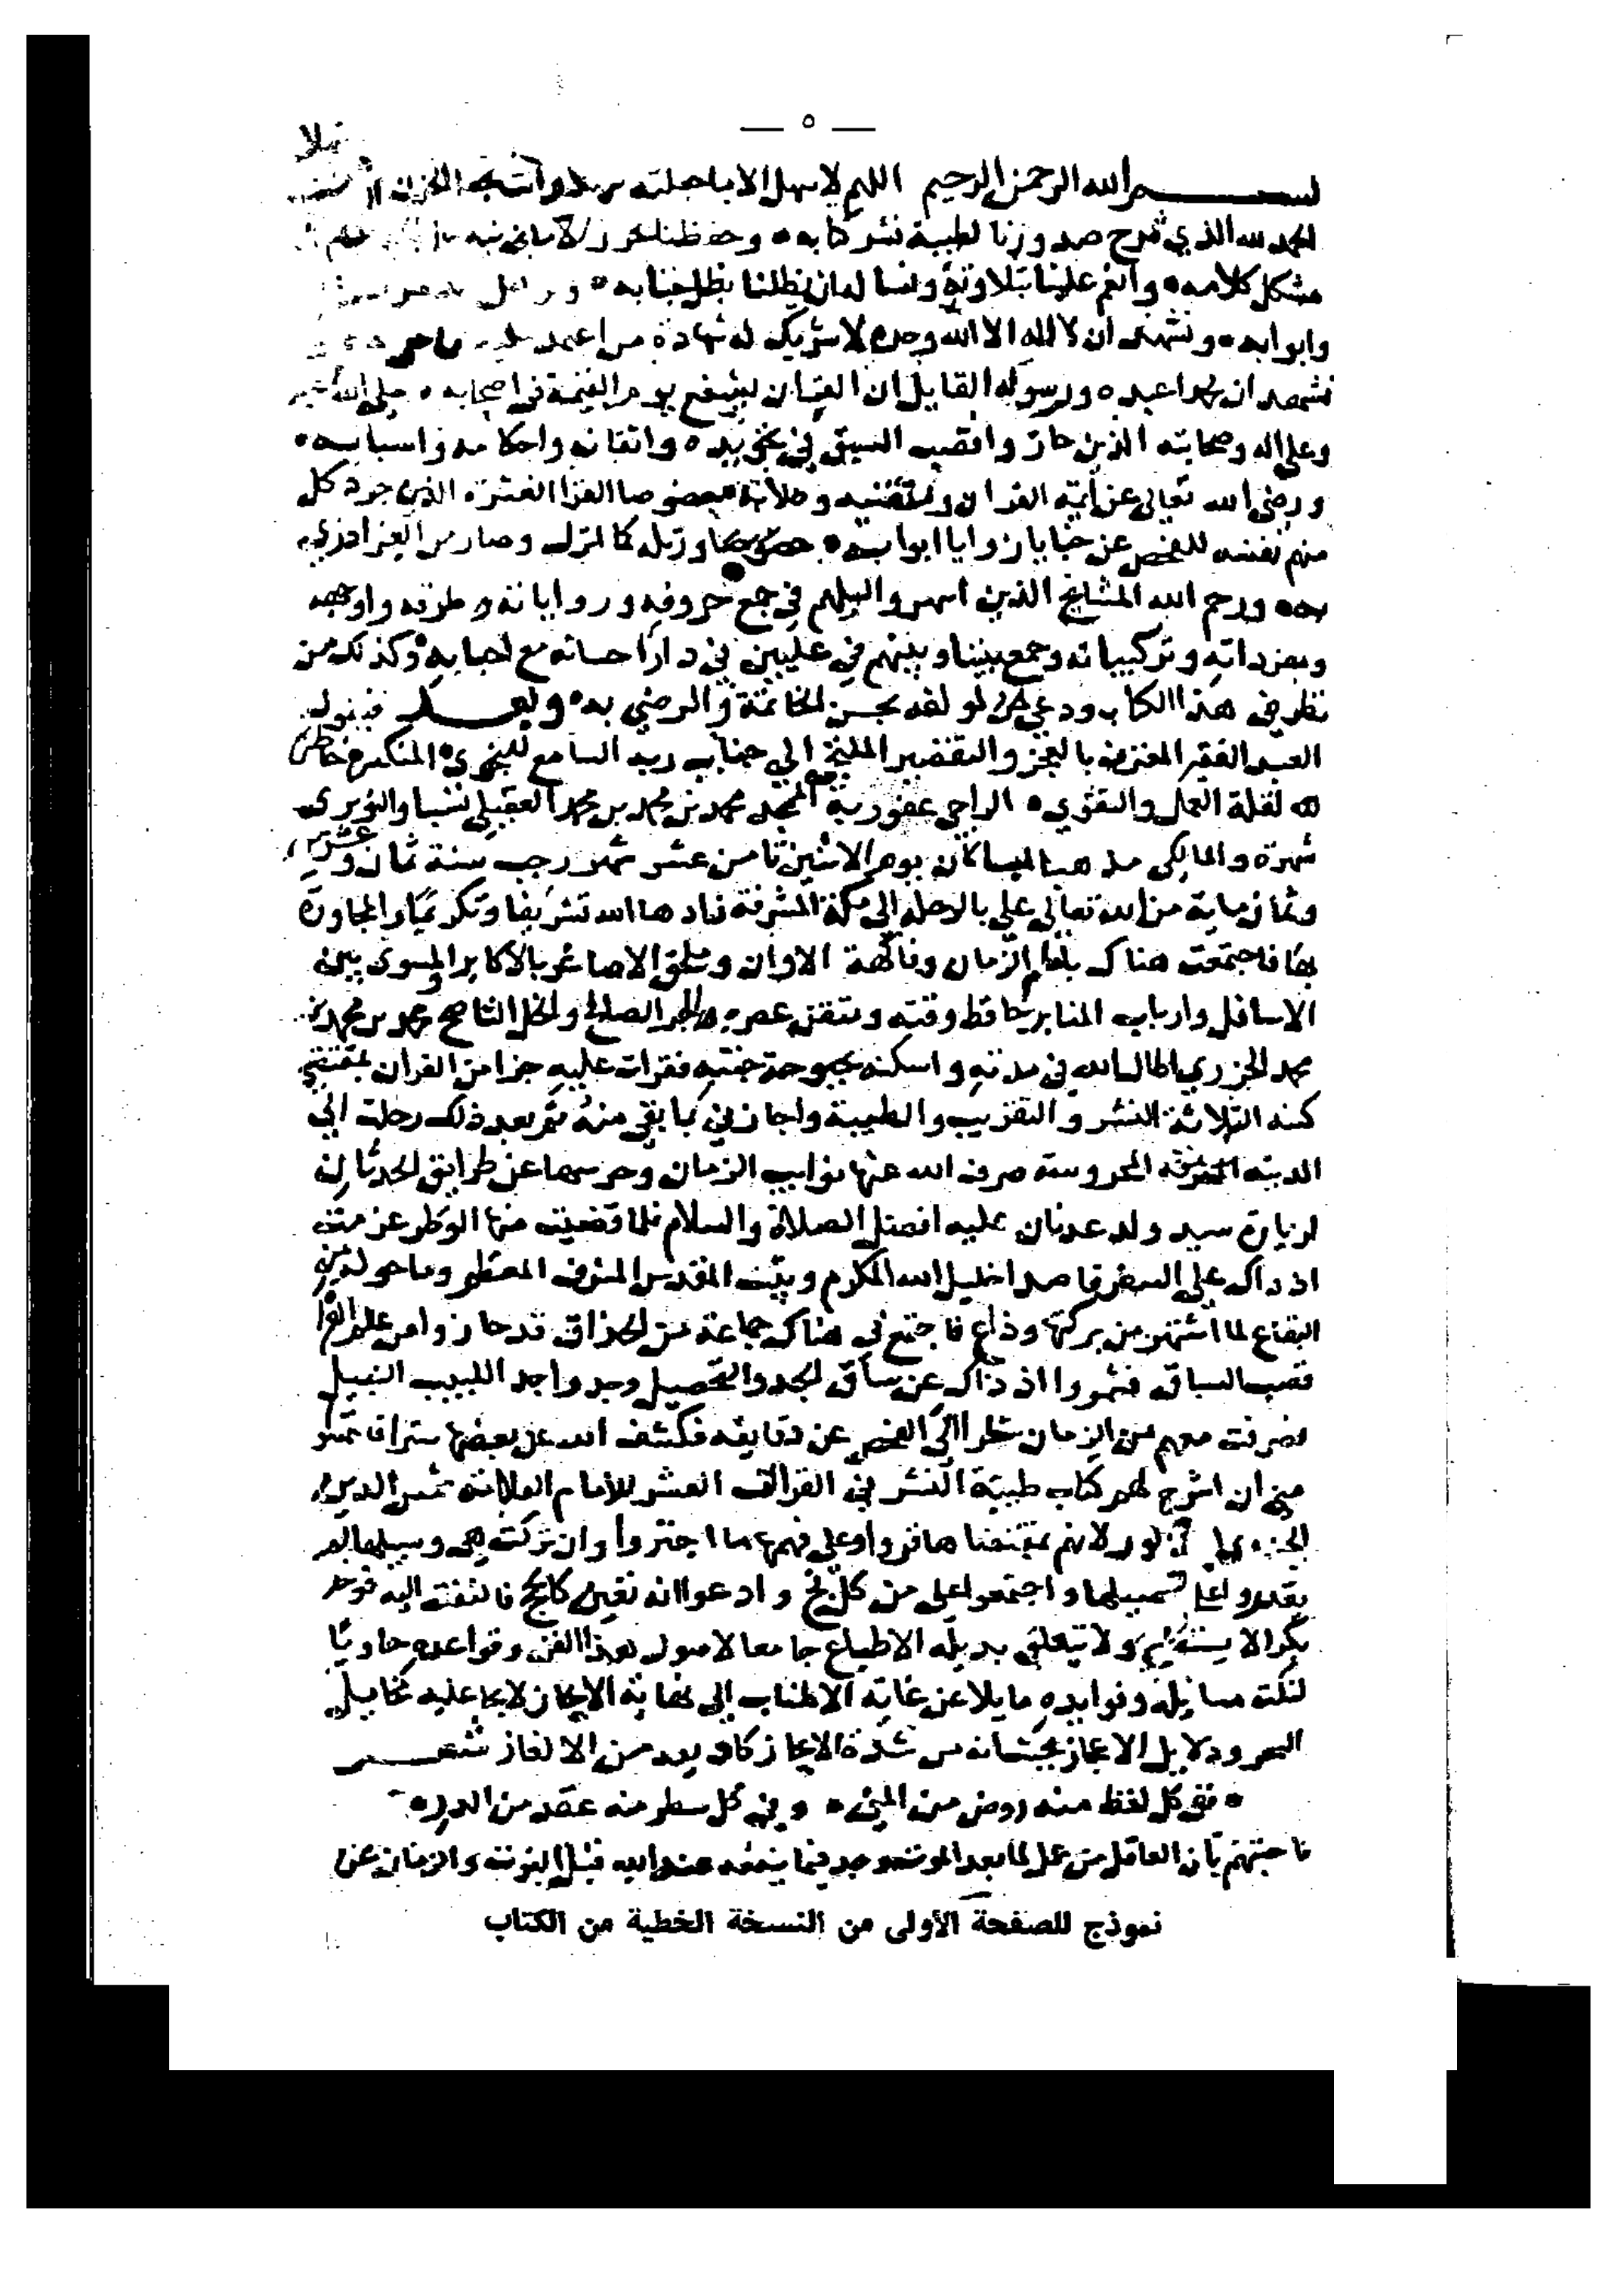 — ٥ —
سهلا
بسم الله الرحمن الرحيم اللهم لا سهل الا ما جعلته سهلا وانت تجعل الحزن
الحمد لله الذي شرح صدورنا لطيبة نشر كتابه وحفظنا
مشكل كلامه وانعم علينا بتلاوته ونساله ان يظلنا بظل جنابه
وابوابه ونشهد ان لا اله الا الله وحده لا شريك له شهادة من اعتمد عليه
نشهد ان محمدا عبده ورسوله القايل ان القران ليشفع يوم القيمة في اصحابه صلى الله عليه
وعلى اله وصحابته الذين حازوا قصب السبق في تجويده واتقانه واحكامه واسبابه
ورضي الله تعالى عن ايمة القران خصوصا القرا العشرة الذين جرد كل
منهم نفسه للفحص عن خبايا زوايا ابوابه ورتله كما انزل وصار من
به ورحم الله المشايخ الذين اسهروا ليلهم في جمع حروفه ورواياته وطرقه واوجهه
ومفرداته وتركيباته وجمع بيننا وبينهم في عليين في دار احسانه مع احبابه وكذلك من
نظر في هذا الكتاب ودعى لمولفه بحسن الخاتمة والرضى به وبعد فيقول
العبد الفقير المعترف بالعجز والتقصير الملتجئ الى جناب ربه السامع للنجوى المنكسر خاطر
ه لقلة العمل والتقوى الراجي عفو ربه محمد بن محمد بن محمد العقيلي نسبا والنويري
شهرة والمالكي مذهبا لما كان يوم الاثنين ثامن عشر شهر رجب سنة ثمان وعشرين
وثمان ماية من الله تعالى علي بالرحلة الى مكة المشرفة زادها الله تشريفا وتكريما والمجاورة
بها فاجتمعت هناك بامام الزمان وفاكهة الاوان وملحق الاصاغر بالاكابر والمسوي بين
الاسافل وارباب المنابر حافظ وقته ومتقن عصره والحبر الصالح والخل الناصح محمد بن محمد بن
محمد الجزري اطال الله في مدته واسكنه بحبوحة جنته فقرات عليه جزا من القران بمقتضى
كتبه الثلاثة النشر والتقريب والطيبة واجازني بما بقي منه ثم بعد ذلك رحلت الى
المدينة المشرفة المحروسة صرف الله عنها نوايب الزمان وحرسها عن طرايق الحدثان
لزيارة سيد ولد عدنان عليه افضل الصلاة والسلام فلما قضيت منها الوطر عزمت
اذ ذاك على السفر قاصدا خليل الله المكرم وبيت المقدس المشرف المعظم وما حوله من
البقاع لما اشتهر من بركتها وذاع فاجتمع بي هناك جماعة من الحذاق قد حازوا من علم القرا
قصب السباق فشمروا اذ ذاك عن ساق الجد والتحصيل وجد واجد اللبيب النبيل
فصرفت معهم من الزمان شطرا الى الفحص عن دقايقه فكشف الله عن بعضها سترا فالتمسوا
مني ان اشرح لهم كتاب طيبة النشر في القراات العشر للامام العلامة شمس الدين
الجزري لانهم بمقتضاها قروا وعلى فهمها ما اجتروا وان تركت هي وسبيلها لم
يقدروا على تسبيلها واجتمعوا علي من كل فج وادعوا انه تعين كالحج فالتفت اليه فوجد
بكرا لا يستطيع ولا تتعلق بذيله الاطماع جامعا لاصول هذا الفن وقواعده حاويا
لنكت مسايله وفوايده مايلا عن غاية الاطناب الى نهاية الايجاز لايحا عليه مخايل
السحر ودلايل الاعجاز بحيث انه من شدة الايجاز كاد يعد من الالغاز شعر
ففي كل لفظ منه روض من المنى وفي كل سطر منه عقد من الدرر
فاجبتهم بان العاقل من عمل لما بعد الموت وجد فيما ينفعه عند الله قبل الفوت والزمان عن
نموذج للصفحة الأولى من النسخة الخطية من الكتاب